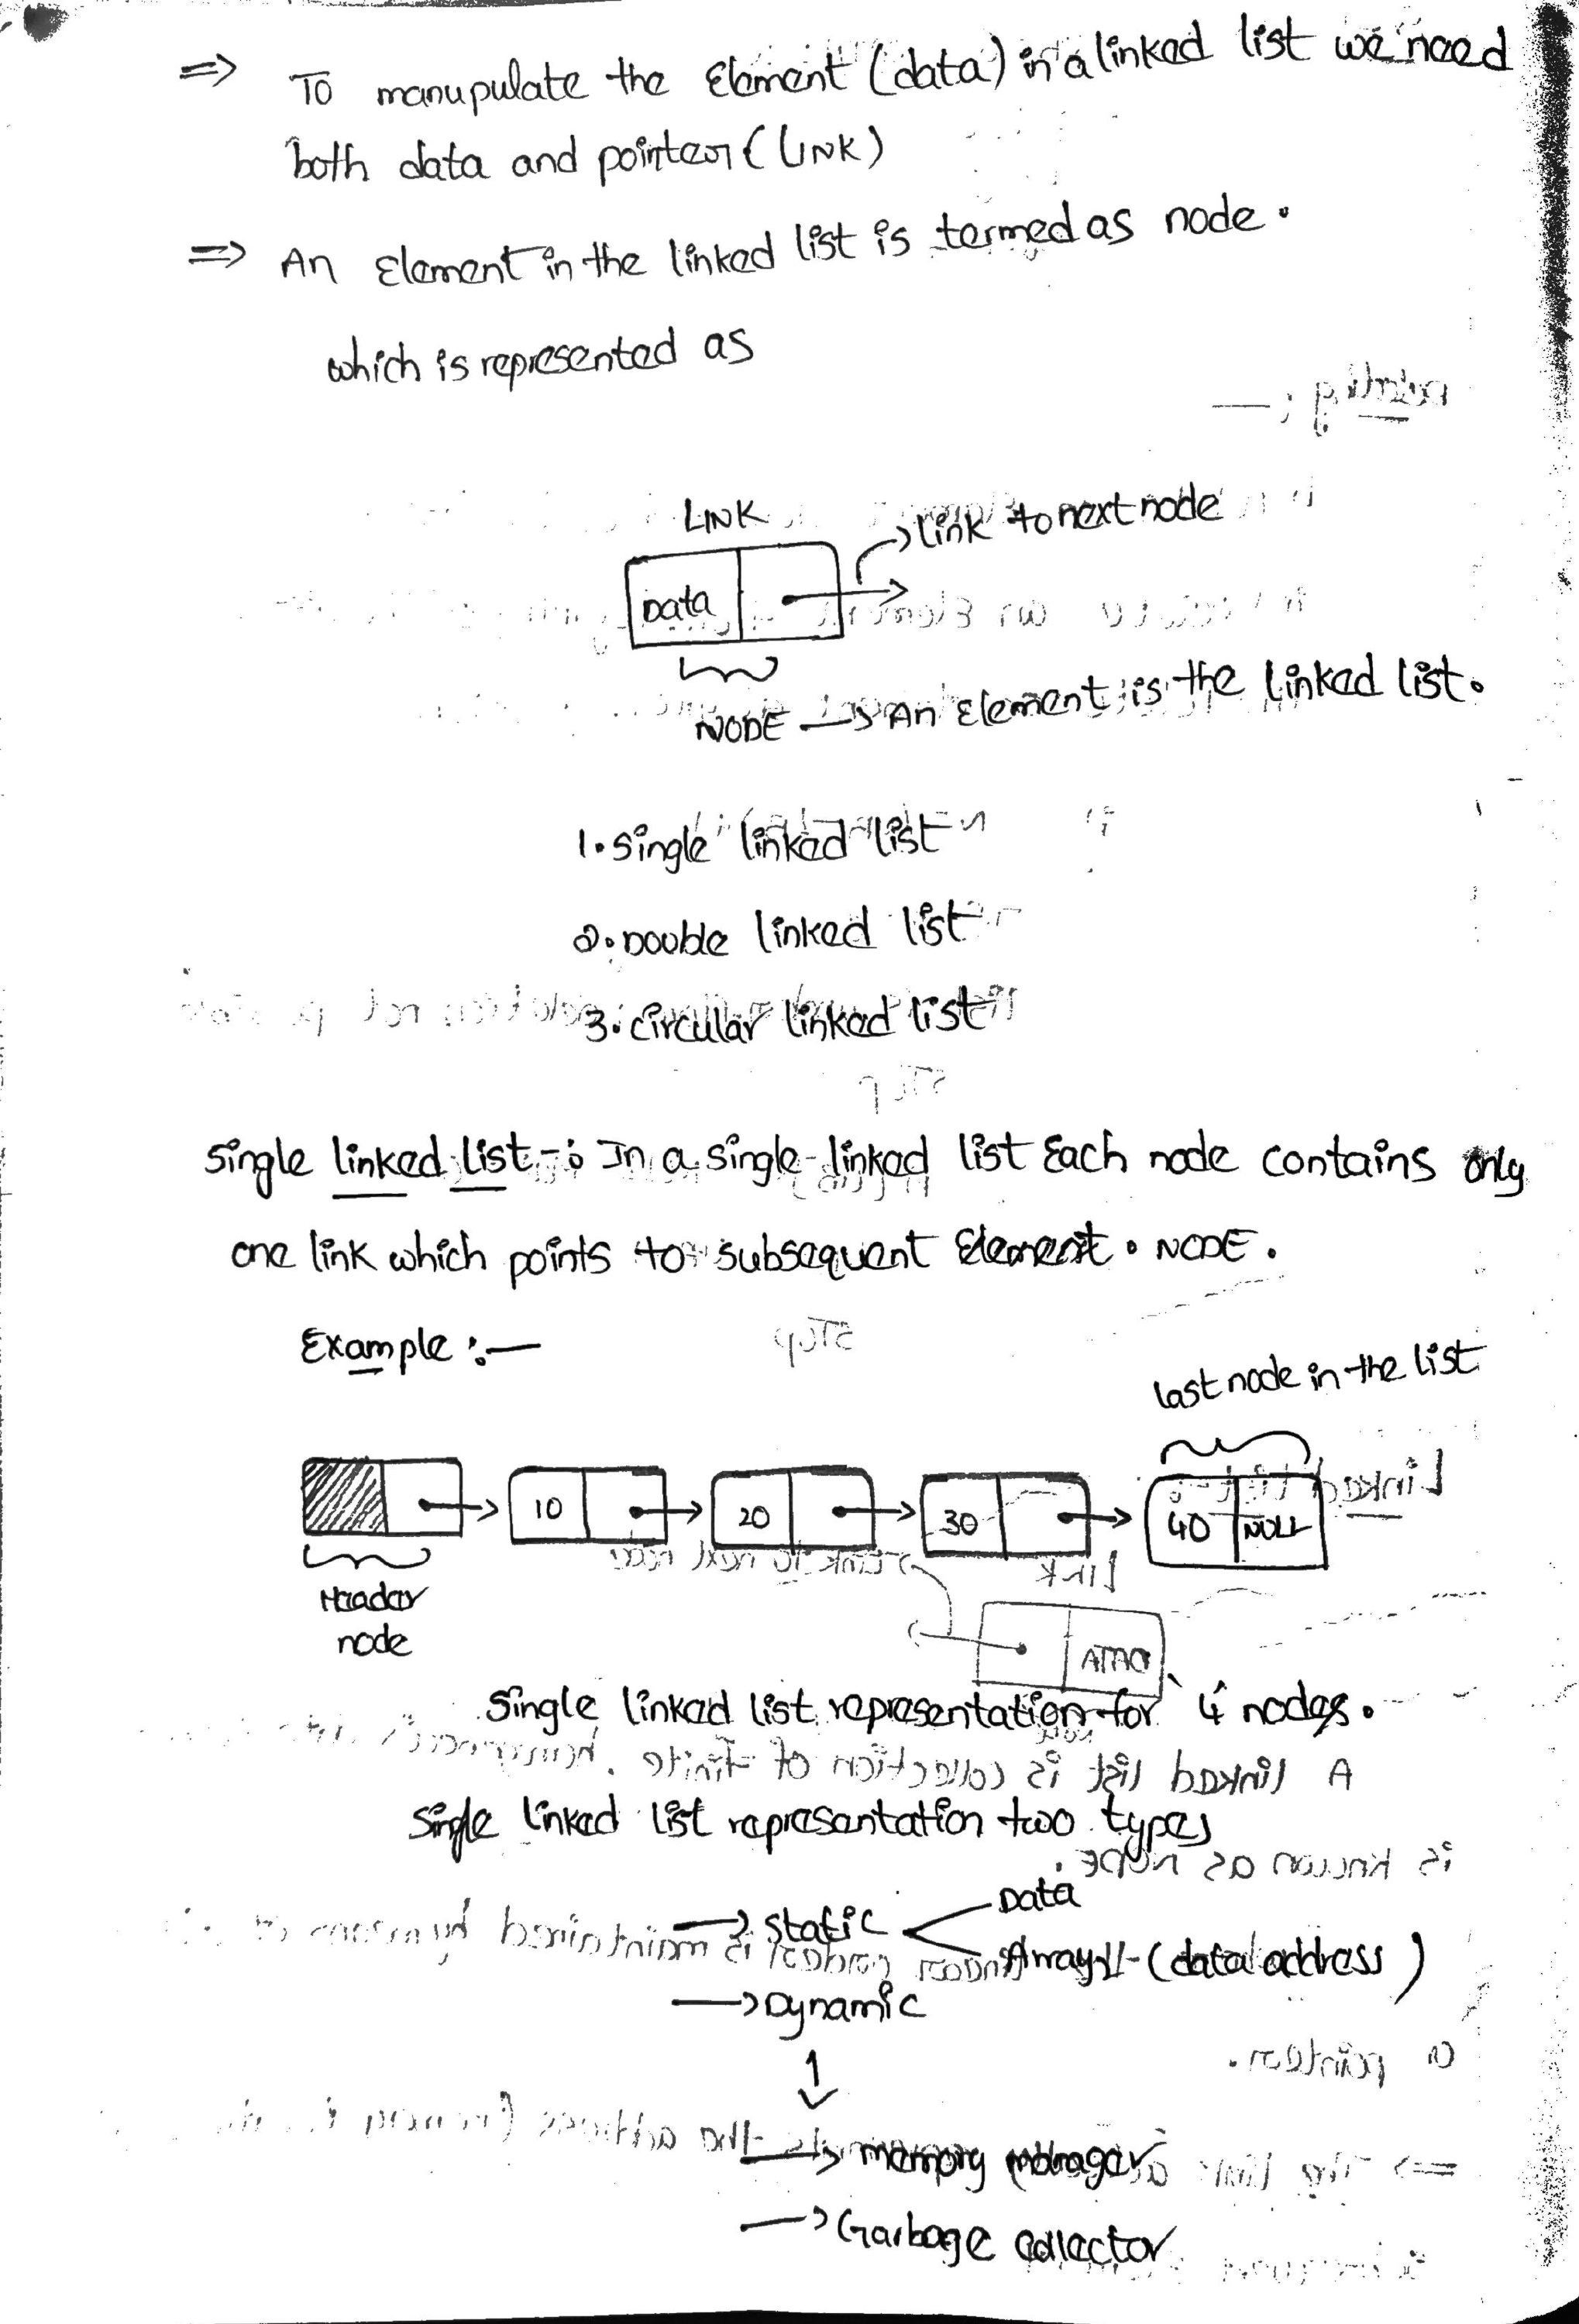 => To manupulate the Element (data) in a linked list we need
both data and pointer (LINK)
=> An Element in the linked list is termed as node.
which is represented as
LINK
link to next node
Data
NODE —> An Element is the linked list.
1. single linked list
2. Double linked list
3. circular linked list
single linked list -: In a single linked list Each node contains only
one link which points to subsequent Element. NODE.
Example :—
last node in the list
10 20 30 40 NULL
Header
node
Single linked list representation for 4 nodes.
Single linked list representation two types
—> static
Data
Array - (data address)
—> Dynamic
—> memory manager
—> Garbage collector